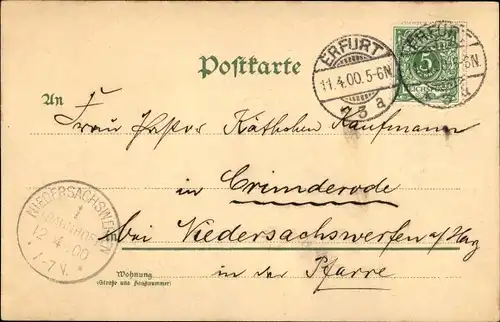 ERFURT
11.4.00.5-6N.
*3a
ERFURT
5
Postkarte
An
Frau Pastor Käthchen Kaufmann
in Crimderode
NIEDERSACHSWERFEN
12.4.00
7-8V.
bei Niedersachswerfen a/Harz
Wohnung
(Straße und Hausnummer)
in der Pfarre